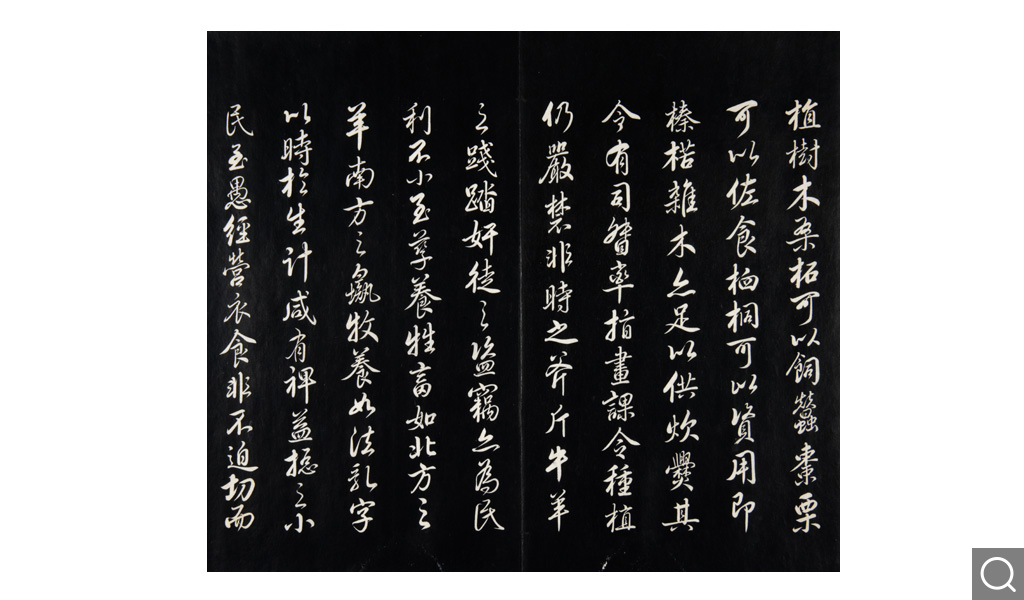 植樹木桑柘可以飼蠶棗栗
可以佐食柏桐可以資用即
榛楛雜木亦足以供炊爨其
令有司督率指畫課令種植
仍嚴禁非時之斧斤牛羊
之踐踏奸徒之盜竊亦為民
利不小至孳養牲畜如北方之
羊南方之彘牧養如法乳字
以時於生計咸有裨益總之小
民至愚經營衣食非不迫切而